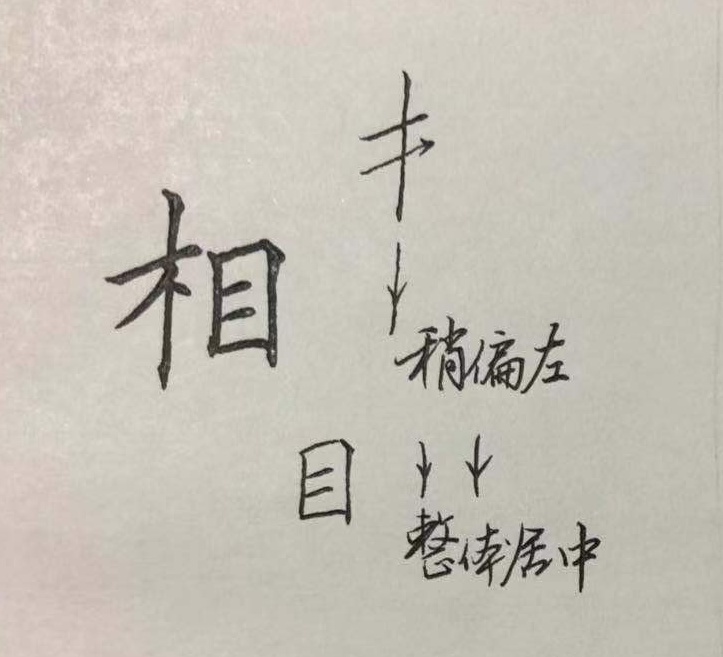 相
稍偏左
目
整体居中